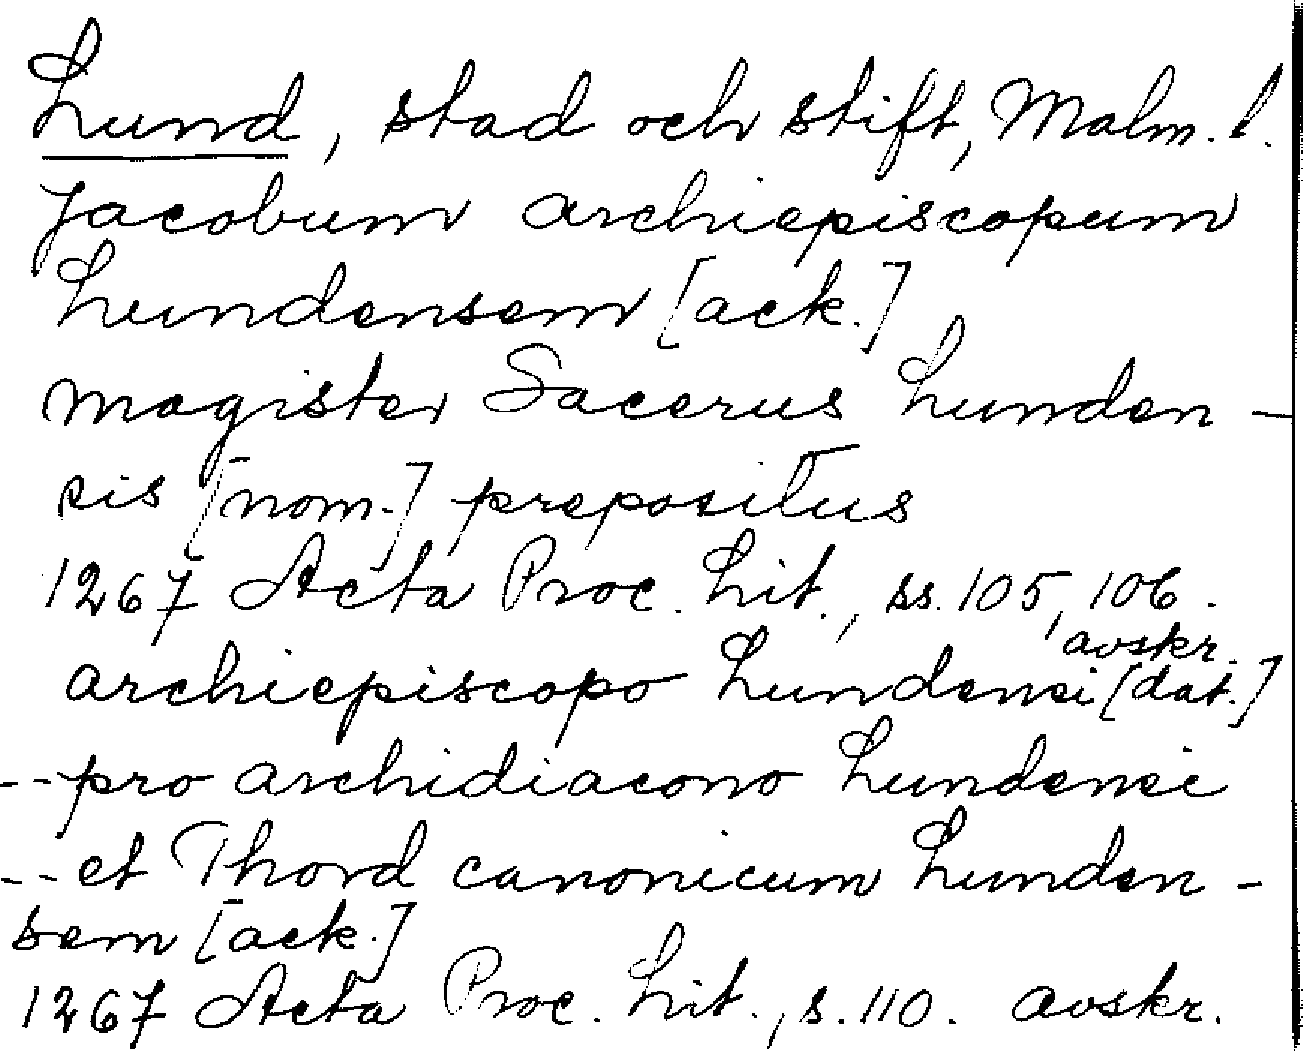 Lund, stad och stift, Malm. l.
Jacobum archiepiscopum
Lundensem [ack.]
magister Sacerus Lunden-
sis [nom.] prepositus
1267 Acta Proc. Lit., ss. 105, 106.
avskr.
archiepiscopo Lundensi [dat.]
--pro archidiacono Lundensi
--et Thord canonicum Lunden-
sem [ack.]
1267 Acta Proc. Lit., s. 110. avskr.